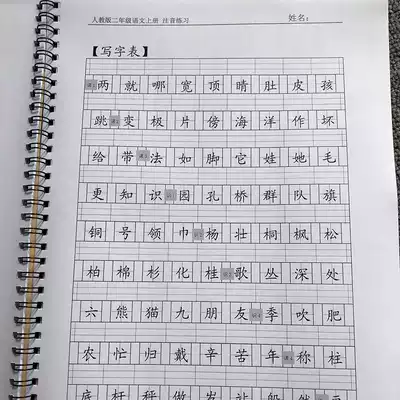 人教版二年级语文上册 注音练习 姓名：
【写字表】
两就哪宽顶晴肚皮孩
跳变极片傍海洋作坏
给带法如脚它娃她毛
更知识园孔桥群队旗
铜号领巾杨壮桐枫松
柏棉杉化桂歌丛深处
六熊猫九朋友季吹肥
农忙归戴辛苦年称柱
底杆秤做岁站船然